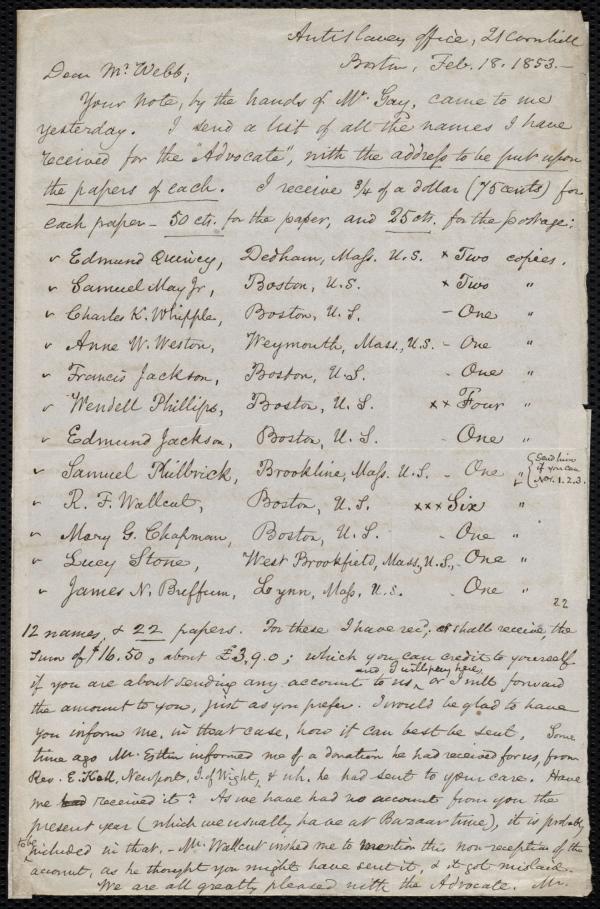 Antislavery office, 21 Cornhill
Boston, Feb. 18. 1853.—
Dear Mr. Webb;
Your note, by the hands of Mr. Gay, came to me
yesterday. I send a list of all the names I have
received for the "Advocate", with the address to be put upon
the papers of each. I receive 3/4 of a dollar (75 cents) for
each paper – 50 cts. for the paper, and 25 cts. for the postage:
✓ Edmund Quincy, Dedham, Mass. U.S. × Two copies.
✓ Samuel May Jr, Boston, U.S. × Two "
✓ Charles K. Whipple, Boston, U.S. – One "
✓ Anne W. Weston, Weymouth, Mass., U.S. – One "
✓ Francis Jackson, Boston, U.S. – One "
✓ Wendell Phillips, Boston, U.S. ×× Four "
✓ Edmund Jackson, Boston, U.S. – One "
✓ Samuel Philbrick, Brookline, Mass. U.S. – One " {Send him if you can Nos. 1. 2. 3.
✓ R. F. Wallcut, Boston, U.S. ××× Six "
✓ Mary G. Chapman, Boston, U.S. – One "
✓ Lucy Stone, West Brookfield, Mass, U.S., – One "
✓ James N. Buffum, Lynn, Mass, U.S. – One "
22
12 names, & 22 papers. For these I have rec'd, or shall receive, the
sum of $16.50, about £3.9.0; which you can credit to yourself
if you are about sending any account to us, and I will pay here, or I will forward
the amount to you, just as you prefer. I would be glad to have
you inform me, in that case, how it can best be sent. Some
time ago Mr. Estlin informed me of a donation he had received for us, from
Rev. E. Kell, Newport, I. of Wight, & wh. he had sent to your care. Have
we had received it? As we have had no account from you the
present year (which we usually have at Bazaar time), it is probably
to be included in that. – Mr. Wallcut wished me to mention this non-reception of the
account, as he thought you might have sent it, & it got mislaid.
We are all greatly pleased with the Advocate. Mr.